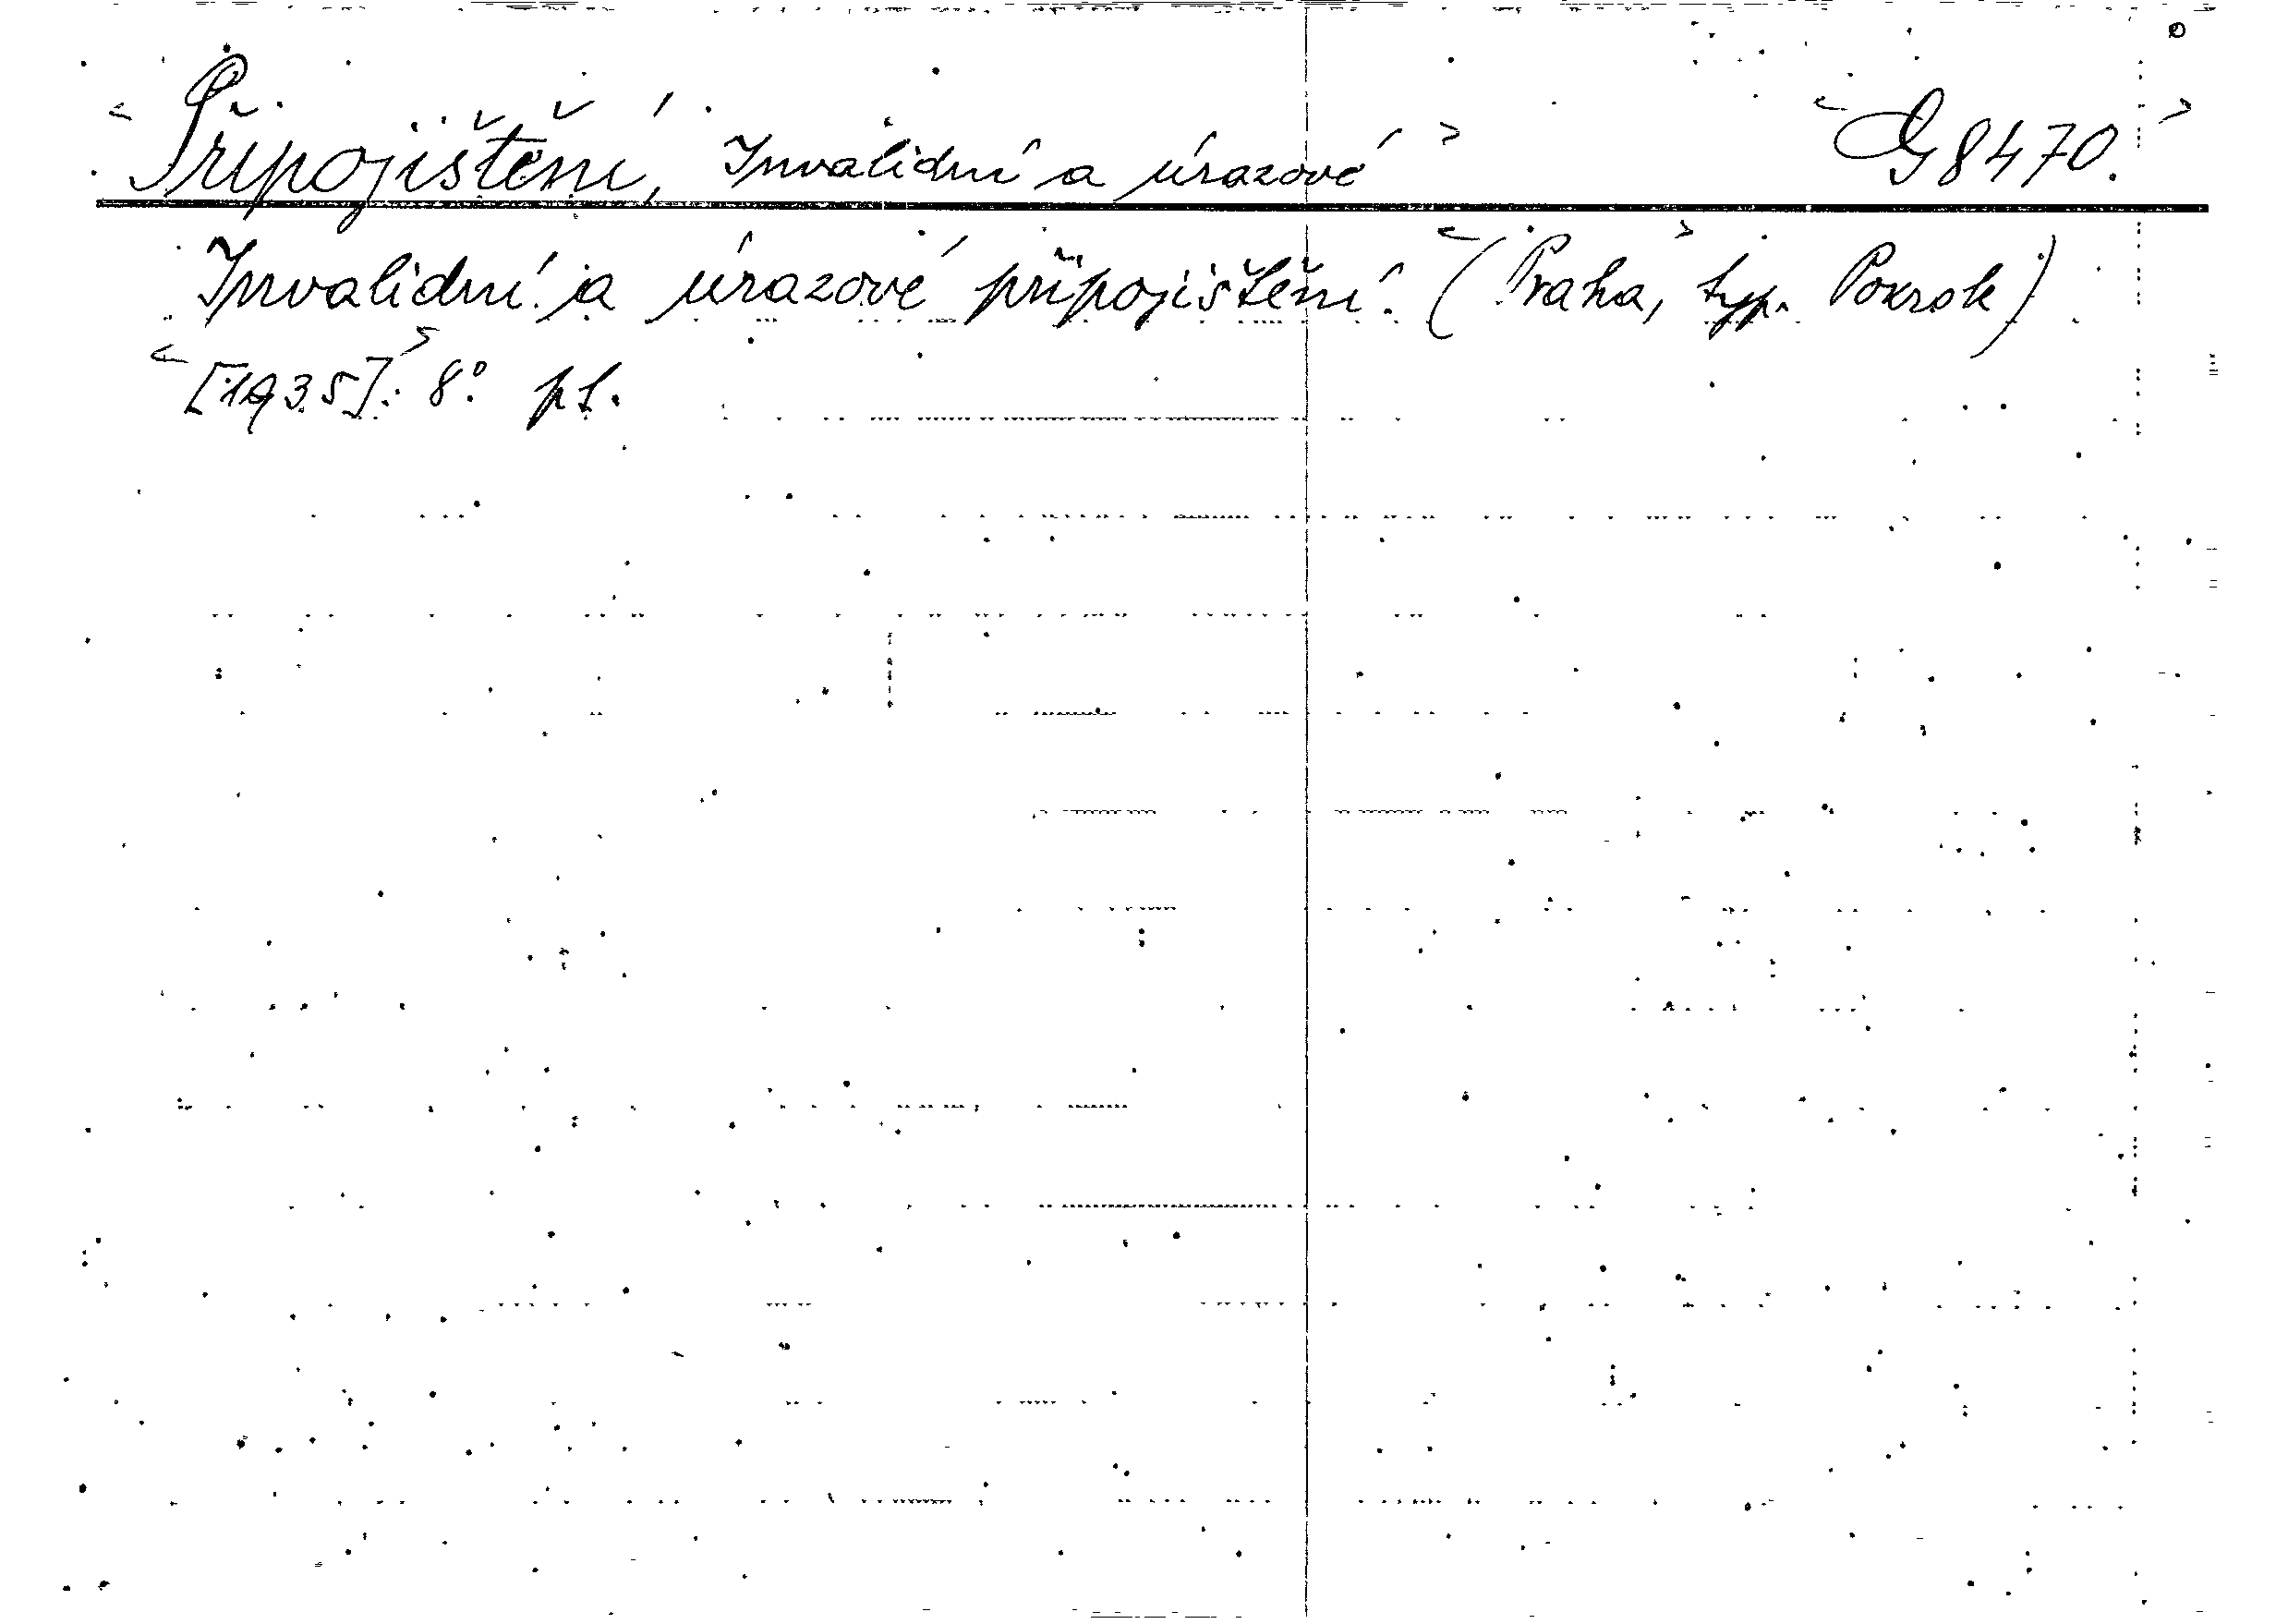 <Připojištění, Invalidní a úrazové> <G 8470.>
Invalidní a úrazové připojištění. (<Praha,> typ. Pokrok)
<[1935].> 8° pl.